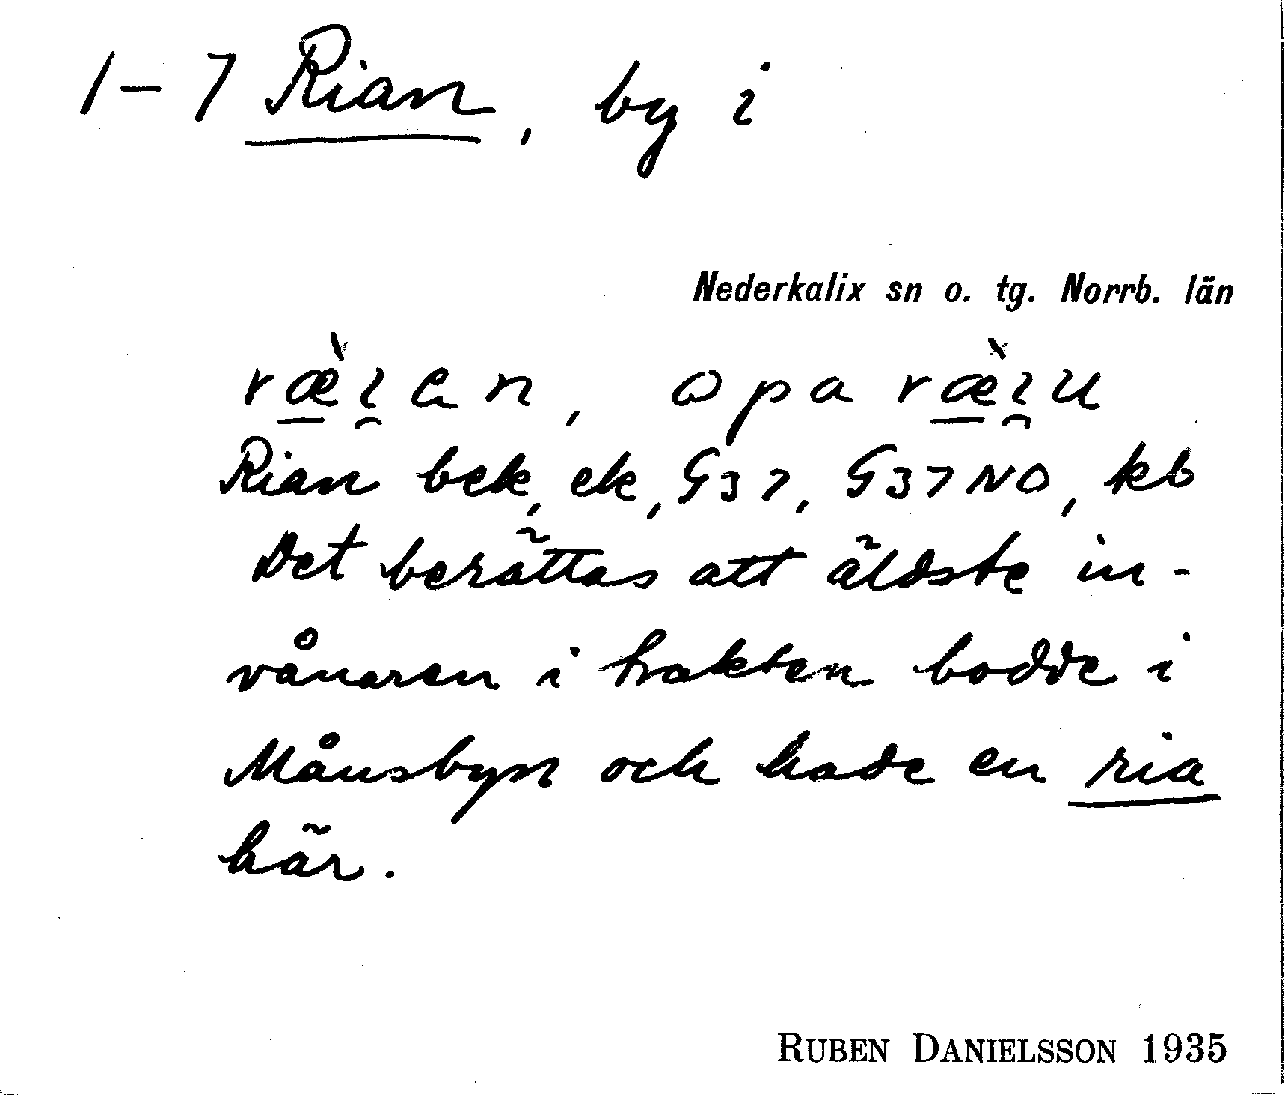 1-7 Rian, by i
Nederkalix sn o. tg. Norrb. län
ræ̀ɩan, opa ræ̀ɩu
Rian bek, ek, G37, G37NO, kb
Det berättas att äldste in-
vånaren i trakten bodde i
Månsbyn och hade en ria
här.
RUBEN DANIELSSON 1935